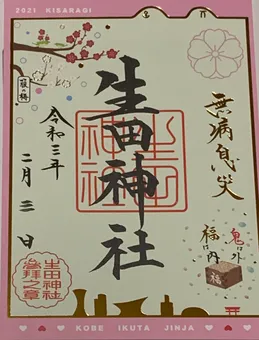 2021 KISARAGI
無病息災
生田神社
生田神社
令和三年
二月三日
箙の梅
鬼は外
福は内
福
生田神社
参拝之章
KOBE IKUTA JINJA